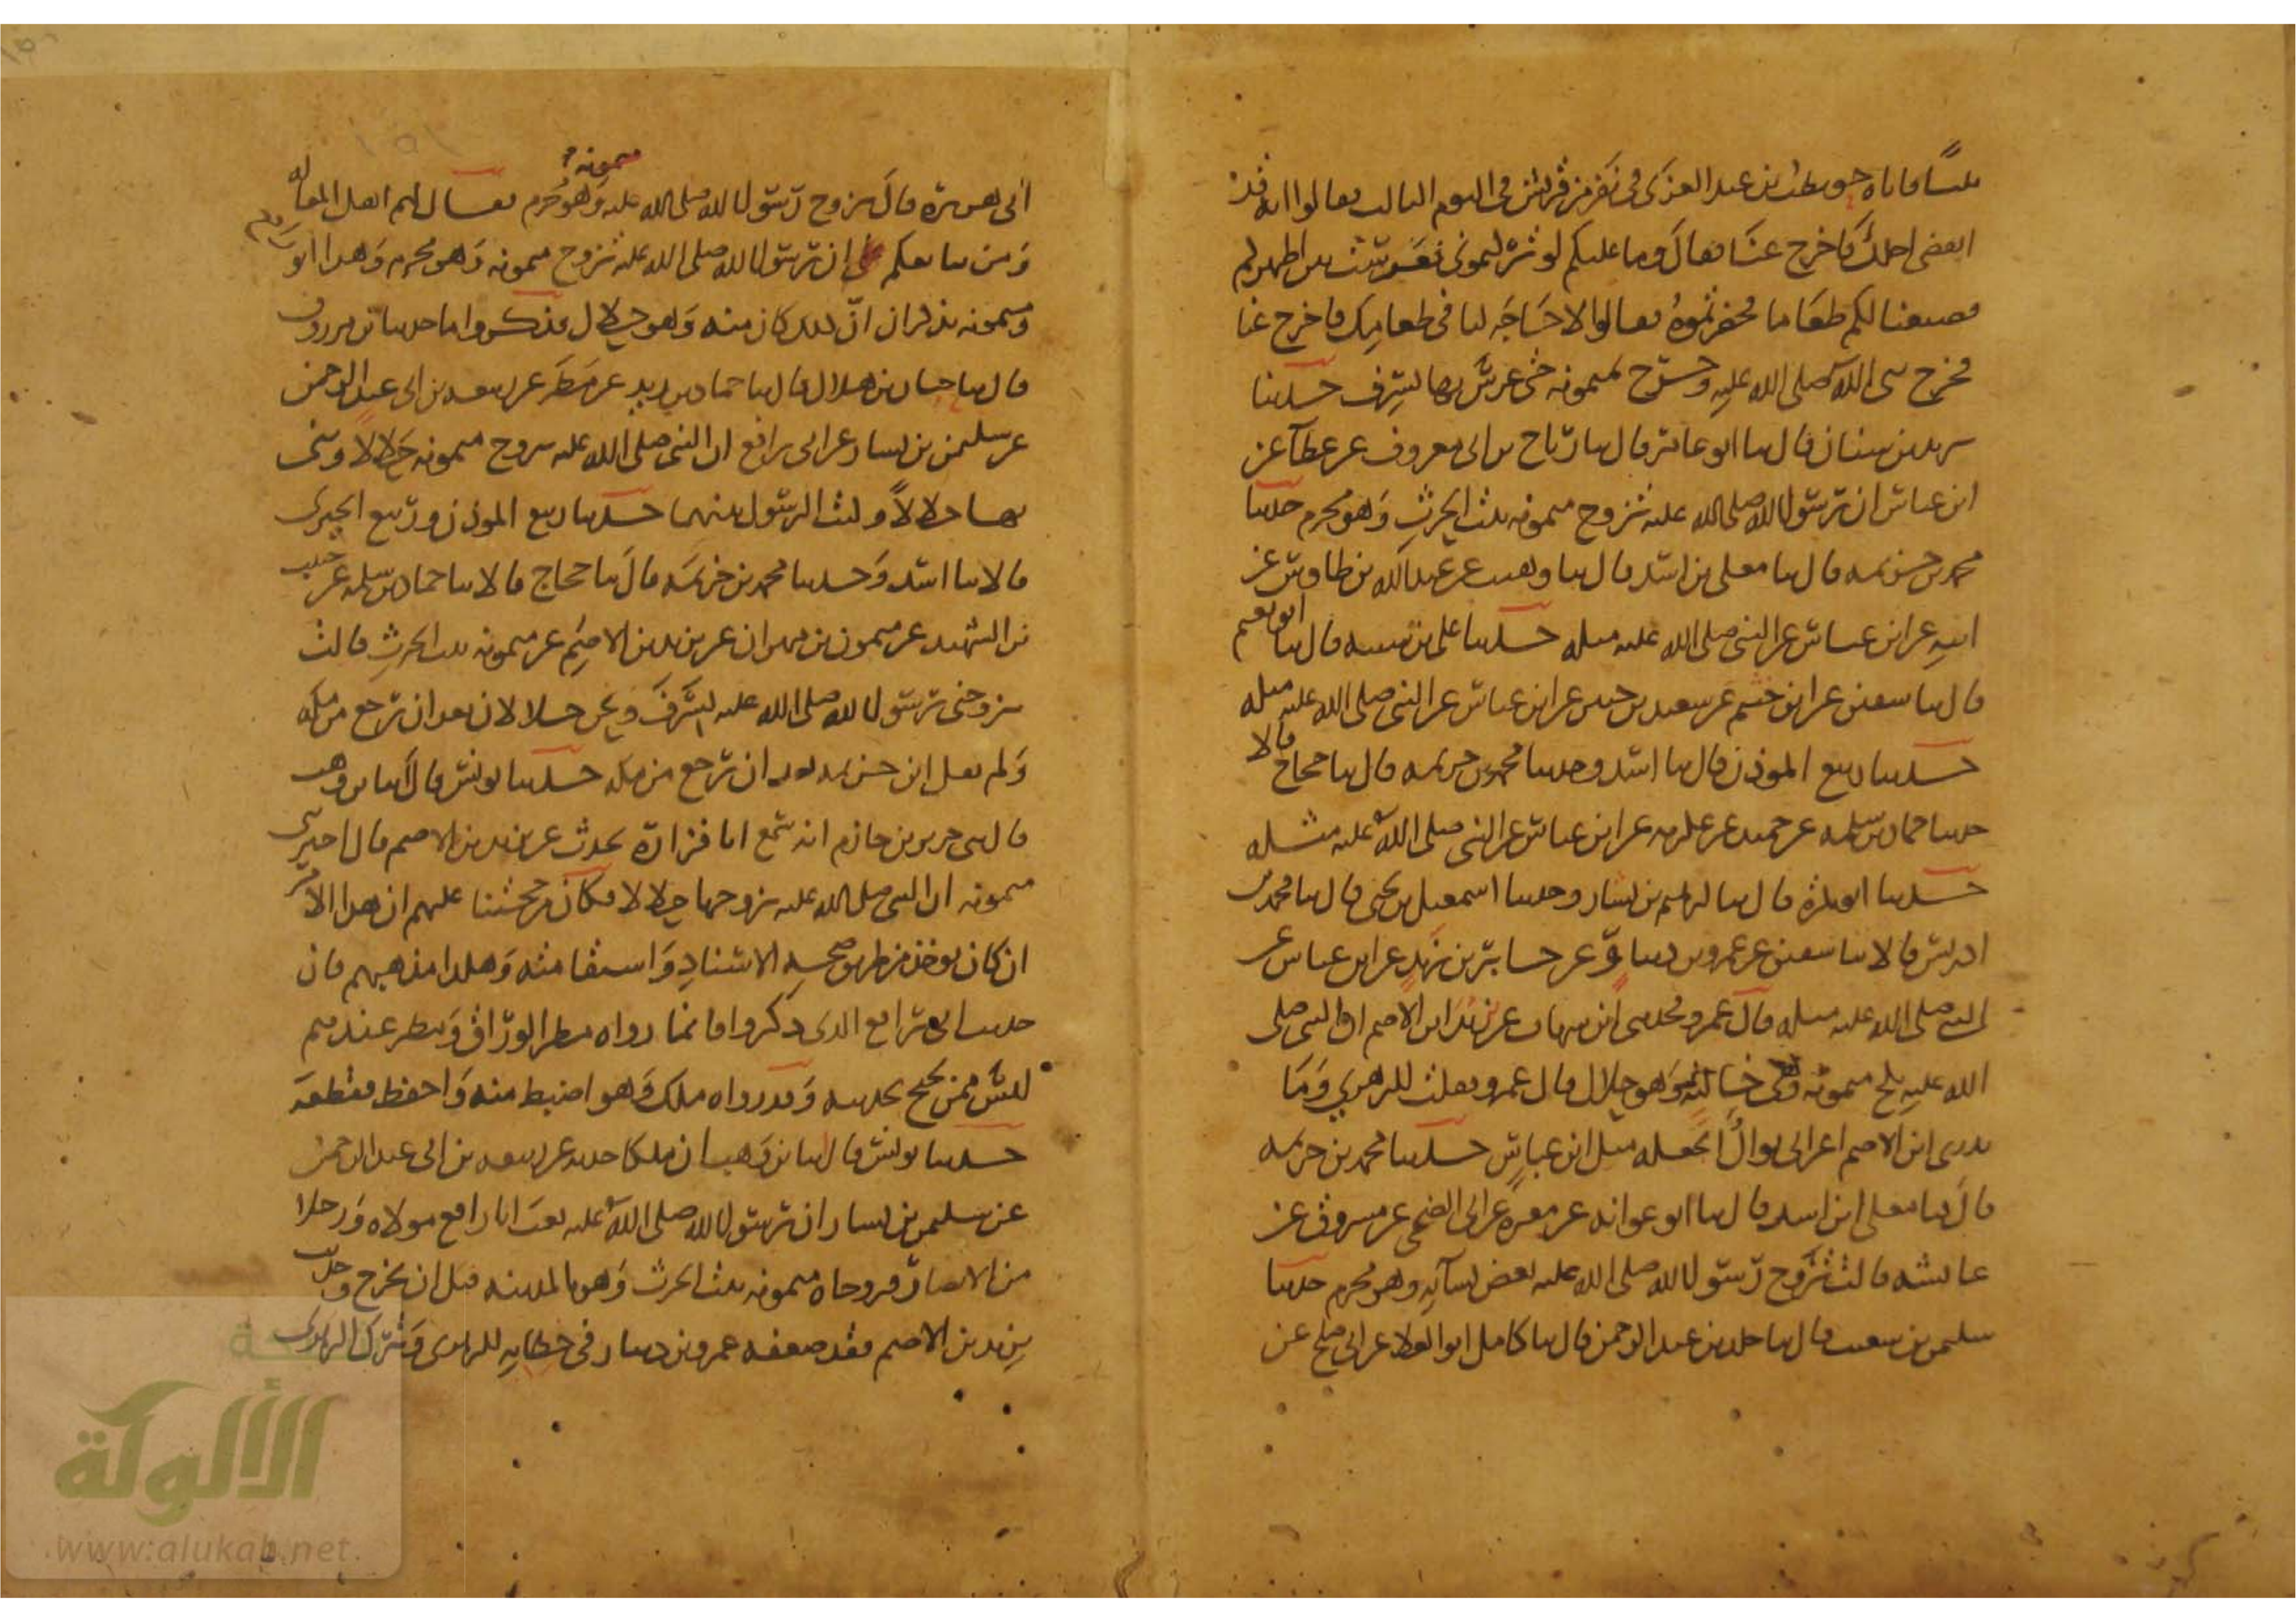 ثلثا فاتاه حويطب بن عبد العزى في نفر من قريش في اليوم الثالث فقالوا انه قد
انقضى اجلك فاخرج عنا فقال وما عليكم لو تركتموني فعرست بين اظهركم
فصنعنا لكم طعاما فحضرتموه فقالوا لا حاجة لنا في طعامك فاخرج عنا
فخرج نبي الله صلى الله عليه وخرج بميمونه حتى عرس بها بسرف حدثنا
يزيد بن سنان قال ثنا ابو عامر قال ثنا رباح بن ابي معروف عن عطآ عن
ابن عباس ان رسول الله صلى الله عليه تزوج ميمونه بنت الحرث وهو محرم حدثنا
محمد بن خزيمه قال ثنا معلى بن اسد قال ثنا وهيب عن عبد الله بن طاوس عن
ابيه عن ابن عباس عن النبي صلى الله عليه مثله حدثنا علي بن شيبه قال ثنا ابو نعيم
قال ثنا سفين عن ابن خثيم عن سعيد بن جبير عن ابن عباس عن النبي صلى الله عليه مثله
حدثنا ربيع الموذن قال ثنا اسد وحدثنا محمد بن خزيمه قال ثنا حجاج قالا
حدثنا حماد بن سلمه عن حميد عن عكرمه عن ابن عباس عن النبي صلى الله عليه مثله
حدثنا ابو بكرة قال ثنا ابرهيم بن بشار وحدثنا اسمعيل بن يحيى قال ثنا محمد بن
ادريس قالا ثنا سفين عن عمرو بن دينار عن جابر بن زيد عن ابن عباس عن
النبي صلى الله عليه مثله قال عمرو فحدثني ابن شهاب عن يزيد ابن الاصم ان النبي صلى
الله عليه نكح ميمونه وهي خالته وهو حلال قال عمرو فقلت للزهري وما
يدري ابن الاصم اعرابي بوال اتجعله مثل ابن عباس حدثنا محمد بن خزيمه
قال ثنا معلى ابن اسد قال ثنا ابو عوانه عن مغيرة عن ابي الضحى عن مسروق عن
عايشه قالت تزوج رسول الله صلى الله عليه بعض نسآيه وهو محرم حدثنا
سليمن بن شعيب قال ثنا خلد بن عبد الرحمن قال ثنا كامل ابو العلا عن ابي صلح عن
ابي هريرة قال تزوج رسول الله صلى الله عليه ميمونه وهو محرم فقال لهم اهل المقاله
ومن يتابعكم على ان رسول الله صلى الله عليه تزوج ميمونه وهو محرم وهذا ابو رافع
وميمونه يذكران ان ذلك كان منه وهو حلال فذكروا ما حدثنا بن مرزوق
قال ثنا حبان بن هلال قال ثنا حماد بن زيد عن مطر عن ربيعه بن ابي عبد الرحمن
عن سليمن بن يسار عن ابي رافع ان النبي صلى الله عليه تزوج ميمونه حلالا وبنى
بها حلالا وكنت الرسول بينهما حدثنا ربيع الموذن وربيع الجيزى
قالا ثنا اسد وحدثنا محمد بن خزيمه قال ثنا حجاج قالا ثنا حماد بن سلمه عن حبيب
بن الشهيد عن ميمون بن مهران عن يزيد بن الاصم عن ميمونه بنت الحرث قالت
تزوجني رسول الله صلى الله عليه بسرف ونحن حلالان بعد ان رجع من مكه
ولم يقل ابن خزيمه بعد ان رجع من مكه حدثنا يونس قال انا بن وهب
قال ثنى جرير بن حازم انه سمع ابا فزارة يحدث عن يزيد بن الاصم قال اخبرتني
ميمونه ان النبي صلى الله عليه تزوجها حلالا فكان من حجتنا عليهم ان هذا الامر
ان كان يوخذ من طريق صحه الاسناد واستقامته وهكذا مذهبهم فان
حديث ابي رافع الذى ذكروا فانما رواه مطر الوراق ومطر عندهم
ليس ممن يحتج بحديثه وقد رواه ملك وهو اضبط منه واحفظ فقطعه
حدثنا يونس قال انا بن وهب ان ملكا حدثه عن ربيعه بن ابي عبد الرحمن
عن سليمن بن يسار ان رسول الله صلى الله عليه بعث ابا رافع مولاه ورجلا
من الانصار فزوجاه ميمونه بنت الحرث وهو بالمدينه قبل ان يخرج وحديث
يزيد بن الاصم فقد ضعفه عمرو بن دينار في خطابه للزهرى وترك الزهرى
الألوكة
www.alukah.net